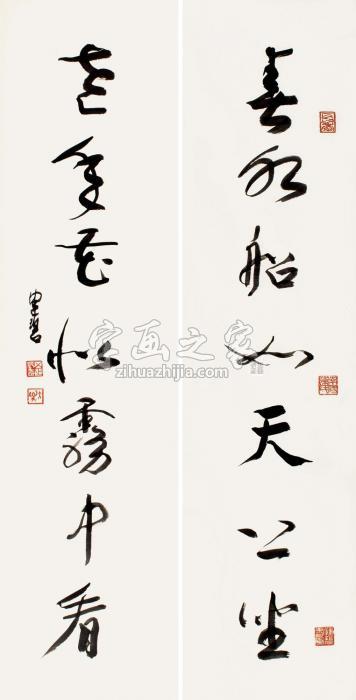 春水船如天上坐
老年花似霧中看
字画之家
zihuazhijia.com